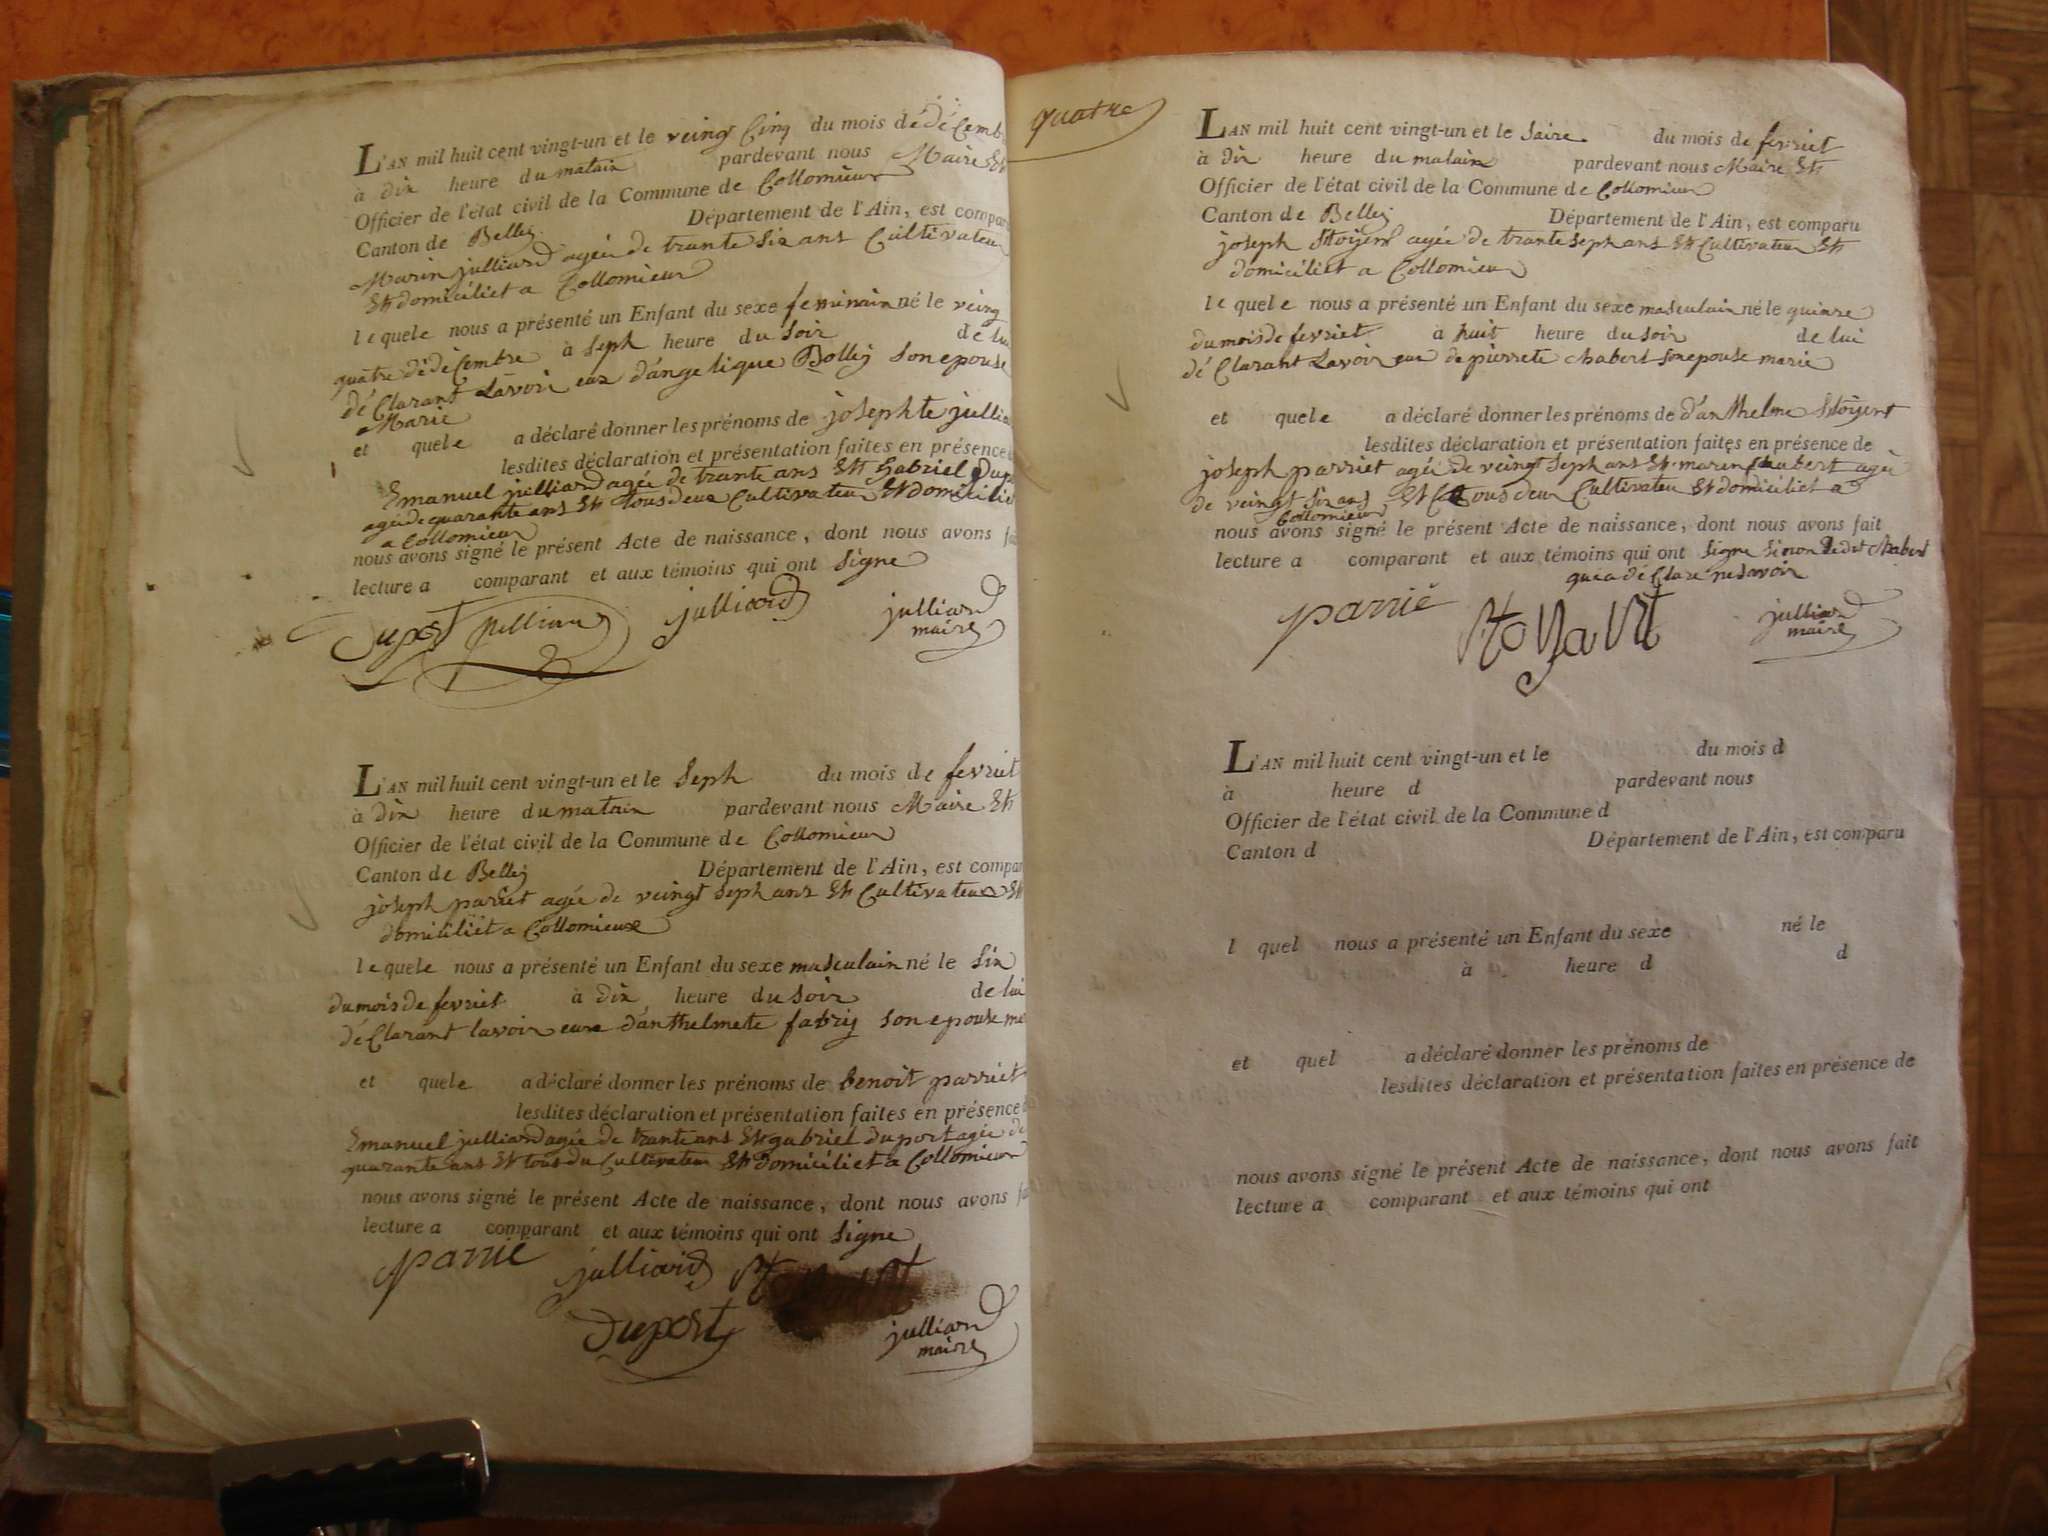 L'AN mil huit cent vingt-un et le veingt Cinq du mois dé déCemb
à dix heure du matain pardevant nous Maire Et
Officier de l'état civil de la Commune de Collomieux
Canton de Belley Département de l'Ain, est compar
Marin julliard agée de trante six ans Cultivateur
Et domiciliet a Collomieux
le quele nous a présenté un Enfant du sexe feminain né le veing
quatre dé déCembre à seph heure du soir de lui
déClarant Lavoir eux d'angelique Bolley son epouse
Marie
et quele a déclaré donner les prénoms de josephte jullia
lesdites déclaration et présentation faites en présence
Emanuel julliard agée de trante ans Et Gabriel Dup
agée de quarante ans Et tous deux Cultivateur Et domicilie
a Collomieux
nous avons signé le présent Acte de naissance, dont nous avons fa
lecture a comparant et aux témoins qui ont signe
Duport julliard julliard
maire
L'AN mil huit cent vingt-un et le seph du mois de fevriet
à dix heure du matain pardevant nous Maire Et
Officier de l'état civil de la Commune de Collomieux
Canton de Belley Département de l'Ain, est compar
joseph parriet agée de veingt seph ans Et Cultivateur Et
domiciliiet a Collomieux
le quele nous a présenté un Enfant du sexe masculain né le six
du mois de fevriet à dix heure du soir de lui
déClarant lavoir eux d'anthelmete fabry son epouse me
et quele a déclaré donner les prénoms de benoit parriet
lesdites déclaration et présentation faites en présence
Emanuel julliard agée de trante ans Et gabriel duport agée de
quarante ans Et tous du Cultivateur Et domiciliet a Collomieux
nous avons signé le présent Acte de naissance, dont nous avons fa
lecture a comparant et aux témoins qui ont signe
parrié julliard
Duport julliard
maire
quatre
L'AN mil huit cent vingt-un et le saire du mois de fevriet
à dix heure du matain pardevant nous Maire Et
Officier de l'état civil de la Commune de Collomieux
Canton de Belley Département de l'Ain, est comparu
joseph agée de trante seph ans Et Cultivateur Et
domiciliet a Collomieux
le quele nous a présenté un Enfant du sexe masculain né le quinre
du mois de fevriet à huit heure du soir de lui
déClarant Lavoir eue de pierrete chabert son epouse marie
et quele a déclaré donner les prénoms de d'anthelme
lesdites déclaration et présentation faites en présence de
joseph parriet agée de veingt seph ans Et marin Chabert agée
de veingt six ans Et tous deux Cultivateu Et domiciliet a
Collomieux
nous avons signé le présent Acte de naissance, dont nous avons fait
lecture a comparant et aux témoins qui ont signe sinon ledit chabert
qui a déClare ne savoir
parrié julliard
maire
L'AN mil huit cent vingt-un et le du mois d
à heure d pardevant nous
Officier de l'état civil de la Commune d
Canton d Département de l'Ain, est comparu
l quel nous a présenté un Enfant du sexe né le
à heure d d
et quel a déclaré donner les prénoms de
lesdites déclaration et présentation faites en présence de
nous avons signé le présent Acte de naissance, dont nous avons fait
lecture a comparant et aux témoins qui ont